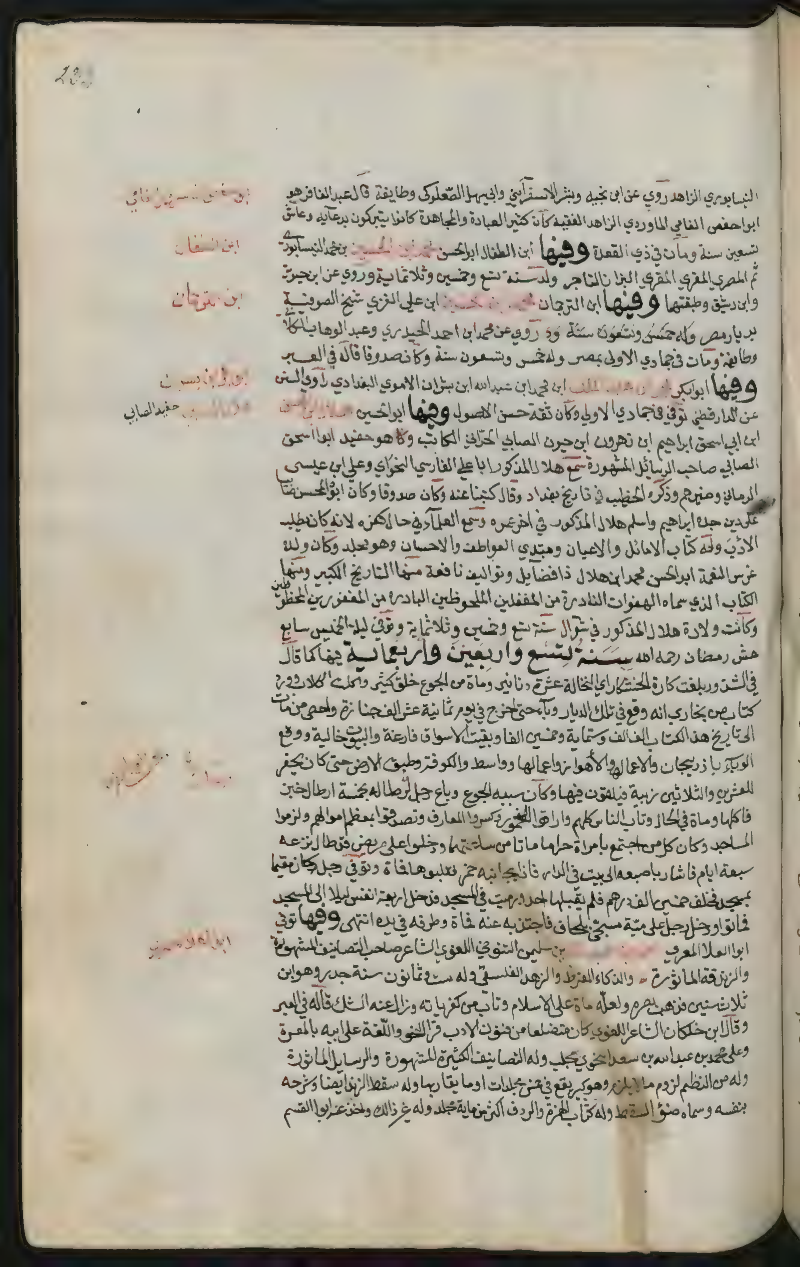 النيسابوري الزاهد روي عن ابن نجيد وبشر الاسفرايني وابي سهل الصعلوكي وطايفة قال عبد الغافر هو
ابو حفص الفامي الماوردي الزاهد الفقيه كان كثير العبادة والمجاهدة كانوا يتبركون بدعايه وعاش
تسعين سنة ومات في ذي القعدة وفيها ابن الطفال ابو الحسن محمد بن الحسين بن محمد النيسابوري
ثم المصري المقري البزاز التاجر ولد سنة تسع وخمسين وثلاثماية وروي عن ابن حيويه
وابن رشيق وطبقتهما وفيها ابن الترجمان محمد بن الحسين ابن علي الغزي شيخ الصوفية
بديار مصر وله خمس وتسعون سنة روي عن محمد ابن احمد الحيدري وعبد الوهاب الكلابي
وطايفة ومات في جمادي الاولي بمصر وله خمس وتسعون سنة وكان صدوقا قاله في العبر
وفيها ابو بكر محمد ابن عبد الملك ابن محمد ابن عبد الله ابن بشران الاموي البغدادي راوي السنن
عن الدارقطني توفي في جمادي الاولي وكان ثقة حسن الاصول وفيها ابو الحسين هلال ابن المحسن
ابن ابي اسحق ابراهيم ابن زهرون ابن حيون الصابي الحراني الكاتب وهو حفيد ابو اسحق
الصابي صاحب الرسائل المشهورة سمع هلال المذكور ابا علي الفارسي النحوي وعلي ابن عيسي
الرماني وغيرهم وذكره الخطيب في تاريخ بغداد وقال كتبنا عنه وكان صدوقا وكان ابوه المحسن صابيا
علي دين جده ابراهيم واسلم هلال المذكور في اخر عمره وسمع العلماء في حال كفره لانه كان يطلب
الادب وله كتاب الاماثل والاعيان ومبتدي العواطف والاحسان وهو مجلد وكان ولده
غرس النعمة ابو الحسن محمد ابن هلال ذا فضايل وتواليف نافعة منها التاريخ الكبير ومنها
الكتاب الذي سماه الهفوات النادرة من المغفلين الملحوظين البادرة من المغفورين المحظوظين
وكانت ولادة هلال المذكور في شوال سنة تسع وخمسين وثلاثماية وتوفي ليلة الخميس سابع
عشر رمضان رحمه الله سنة تسع واربعين واربعماية فيها كما قال
في الشذور بلغت كارة الخشكار اي النخالة عشرة دنانير ومات من الجوع خلق كثير واكلت الكلاب وورد
كتاب من بخاري انه وقع في تلك الديار وباء حتي اخرج في يوم ثمانية عشر الف جنازة واحصي من مات
الي تاريخ هذا الكتاب الف الف وستماية وخمسين الفا وبقيت الاسواق فارغة والبيوت خالية ووقع
الوباء باذربيجان واعمالها والاهواز واعمالها وواسط والكوفة وطبق الارض حتي كان يحفر
للعشرين والثلاثين زبية فيلقون فيها وكان سببه الجوع وباع رجل ارطالا له بخمسة ارطال خبز
فاكلها ومات في الحال وتاب الناس كلهم واراقوا الخمور وكسروا المعازف وتصدقوا بمعظم اموالهم ولزموا
المساجد وكان كل من اجتمع بامراة حراما ماتا من ساعتهما ودخلوا علي مريض قد طال نزعه
سبعة ايام فاشار باصبعه الي بيت في الدار فاذا بخابية خمر فقلبوها فمات وتوفي رجل كان مقيما
بمسجد فخلف خمسين الف درهم فلم يقبلها احد ورميت في المسجد فدخل اربعة انفس ليلا الي المسجد
فماتوا ودخل رجل علي ميتة مسجاة بلحاف فاجتذبه عنها فمات وطرفه في يده انتهي وفيها توفي
ابو العلا المعري بن سليمن التنوخي اللغوي الشاعر صاحب التصانيف المشهورة
والزندقة الماثورة والذكاء المفرط والزهد الفلسفي وله ست وثمانون سنة جدر وهو ابن
ثلاث سنين فذهب بصره ولعله مات علي الاسلام وتاب من كفرياته وزال عنه الشك قاله في العبر
وقال ابن خلكان الشاعر اللغوي كان متضلعا من فنون الادب قرا النحو واللغة علي ابيه بالمعرة
وعلي محمد بن عبد الله بن سعد النحوي بحلب وله التصانيف الكثيرة المشهورة والرسايل الماثورة
وله من النظم لزوم ما لا يلزم وهو كبير يقع في خمس مجلدات او ما يقاربها وله سقط الزند ايضا وشرحه
بنفسه وسماه ضوء السقط وله كتاب الهمزة والردف اكثر من ماية مجلد وله غير ذلك واخذ عنه ابو القسم
ابن الطفال
ابن الترجمان
حفيد الصابي
ابو العلا المعري